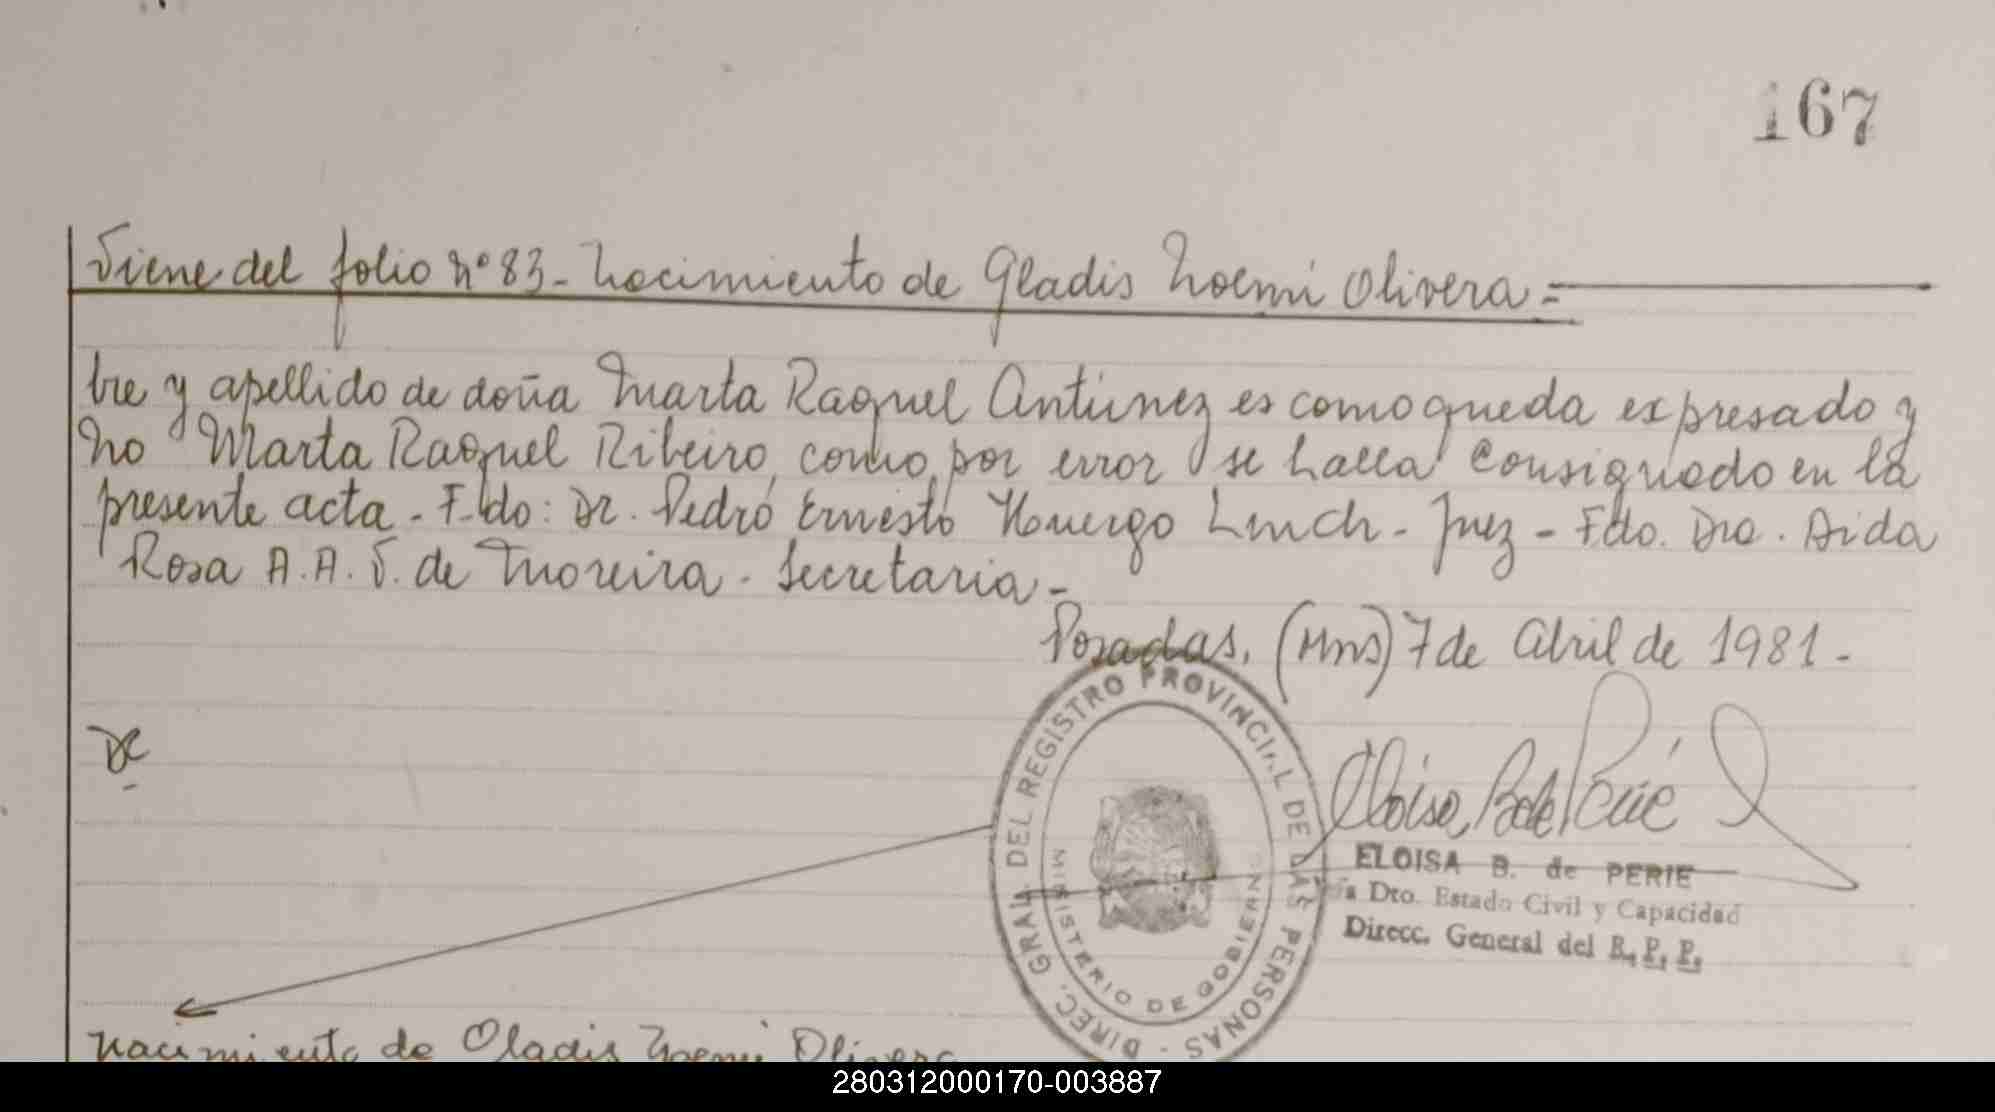 167
Viene del folio nº 83 - Nacimiento de Gladis Noemí Olivera =
bre y apellido de doña Marta Raquel Antúnez es como queda expresado y
no Marta Raquel Ribeiro, como por error se halla consignado en la
presente acta - Fdo: Dr. Pedro Ernesto Linch - Juez - Fdo. Dra. Aida
Rosa A. A. V. de Moreira - Secretaria -
Posadas, (Mns) 7 de Abril de 1981 -
DIREC. GRAL. DEL REGISTRO PROVINCIAL DE LAS PERSONAS -
MINISTERIO DE GOBIERNO
ELOISA B. de PERIE
Dto. Estado Civil y Capacidad
Direcc. General del R. P. P.
Nacimiento de Gladis Noemí Olivera
280312000170-003887